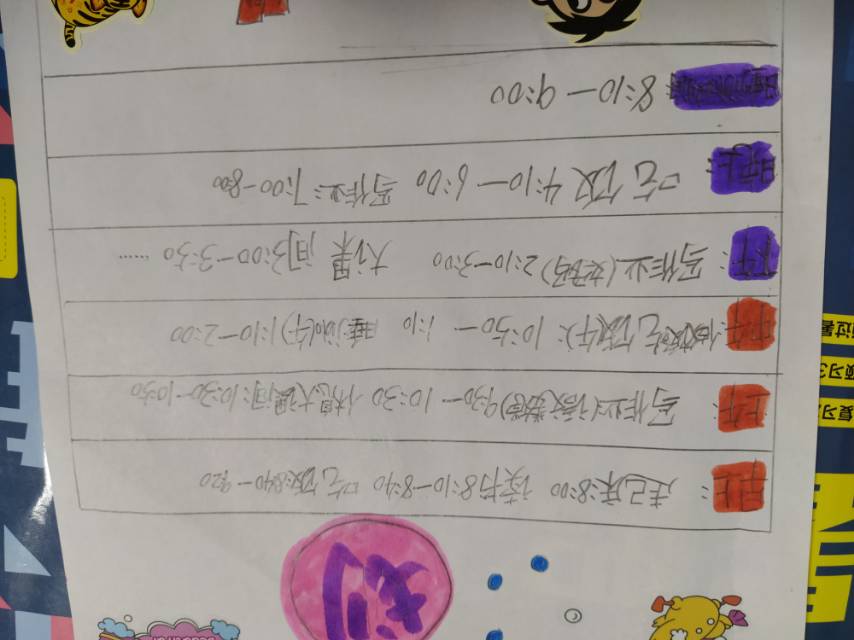 划
早上：起床:8:00 读书8:10-8:40 吃饭:8:40-9:20
上午：写作业(语文数学)9:30-10:30 休息大课间:10:30-10:50
中午:做饭吃饭(午):10:50-1:10 睡(午)1:10-2:00
下午：写作业( )2:10-3:00 大课间3:00-3:30……
晚上：吃饭4:10-6:00 写作业:7:00-8:00
8:10-9:00